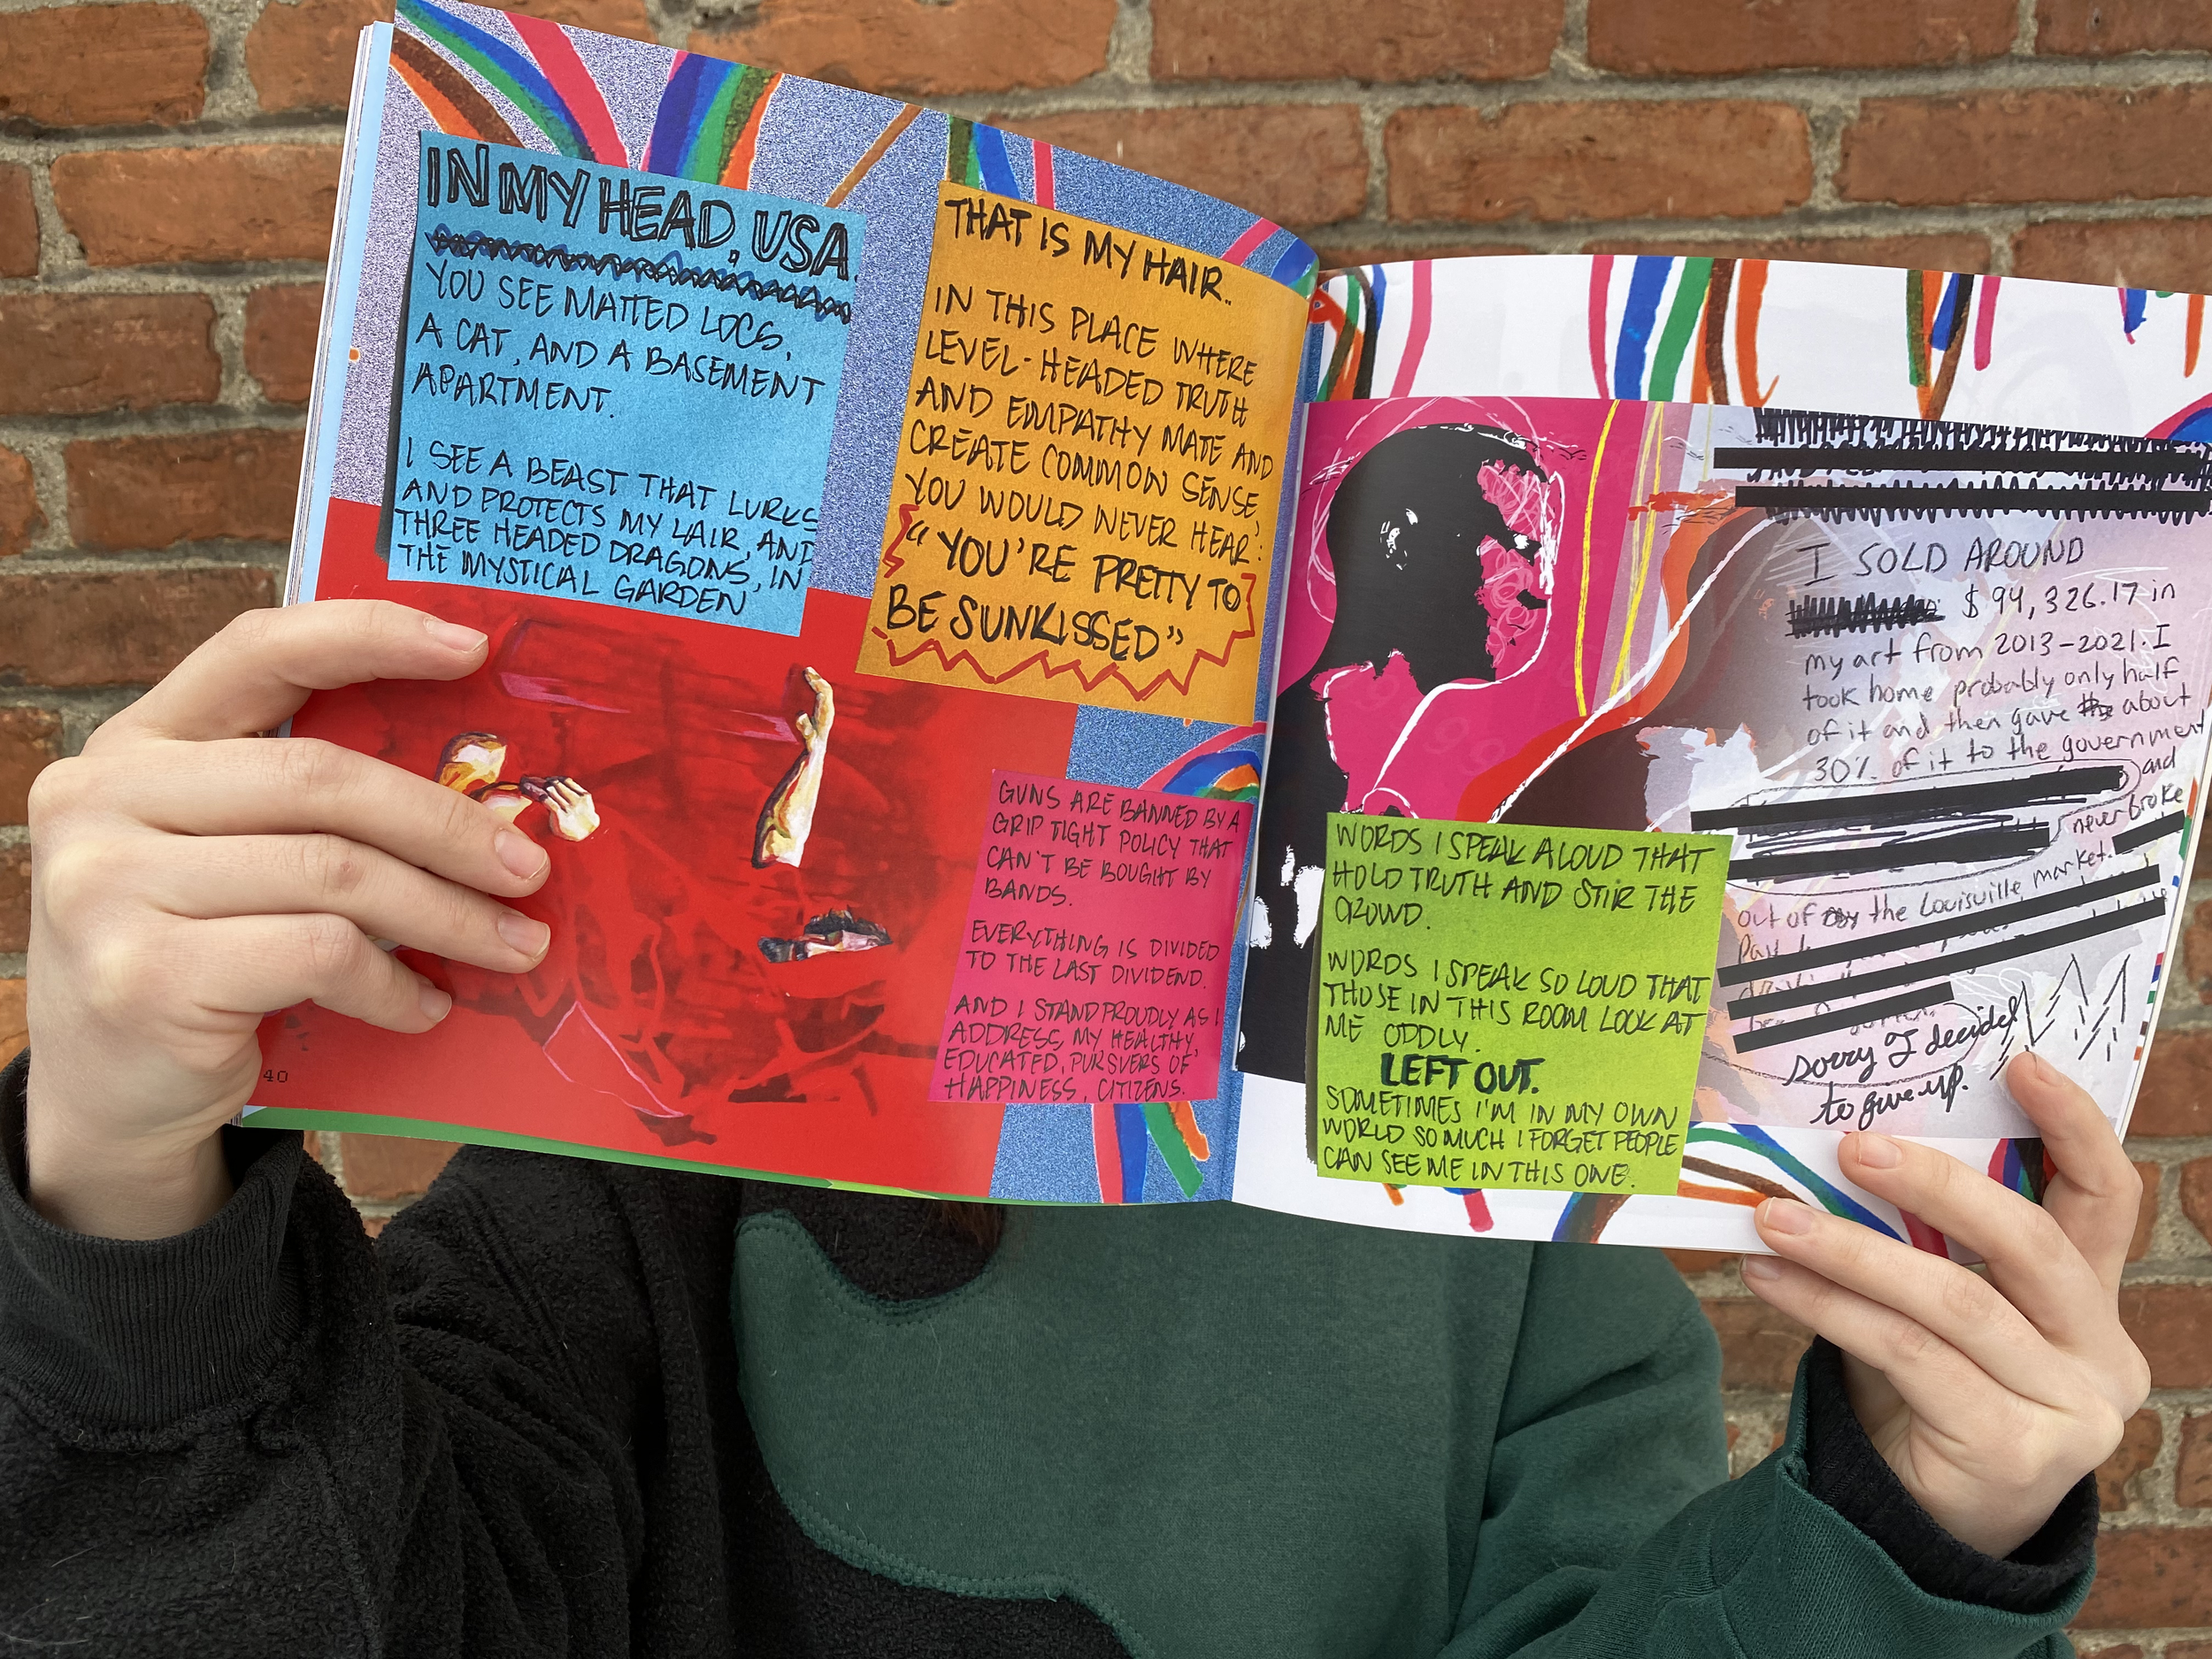 IN MY HEAD, USA.
YOU SEE MATTED LOCS,
A CAT, AND A BASEMENT
APARTMENT.
I SEE A BEAST THAT LURKS
AND PROTECTS MY LAIR, AND
THREE HEADED DRAGONS, IN
THE MYSTICAL GARDEN
THAT IS MY HAIR..
IN THIS PLACE WHERE
LEVEL-HEADED TRUTH
AND EMPATHY MATE AND
CREATE COMMON SENSE,
YOU WOULD NEVER HEAR:
"YOU'RE PRETTY TO
BE SUNKISSED"
GUNS ARE BANNED BY A
GRIP TIGHT POLICY THAT
CAN'T BE BOUGHT BY
BANDS.
EVERYTHING IS DIVIDED
TO THE LAST DIVIDEND.
AND I STAND PROUDLY AS I
ADDRESS, MY HEALTHY,
EDUCATED, PURSUERS OF
HAPPINESS, CITIZENS.
40
WORDS I SPEAK ALOUD THAT
HOLD TRUTH AND STIR THE
CROWD.
WORDS I SPEAK SO LOUD THAT
THOSE IN THIS ROOM LOOK AT
ME ODDLY.
LEFT OUT.
SOMETIMES I'M IN MY OWN
WORLD SO MUCH I FORGET PEOPLE
CAN SEE ME IN THIS ONE.
I SOLD AROUND
$94,326.17 in
my art from 2013-2021. I
took home probably only half
of it and then gave about
30% of it to the government
and
never broke
out of the Louisville market.
sorry I decided
to give up.